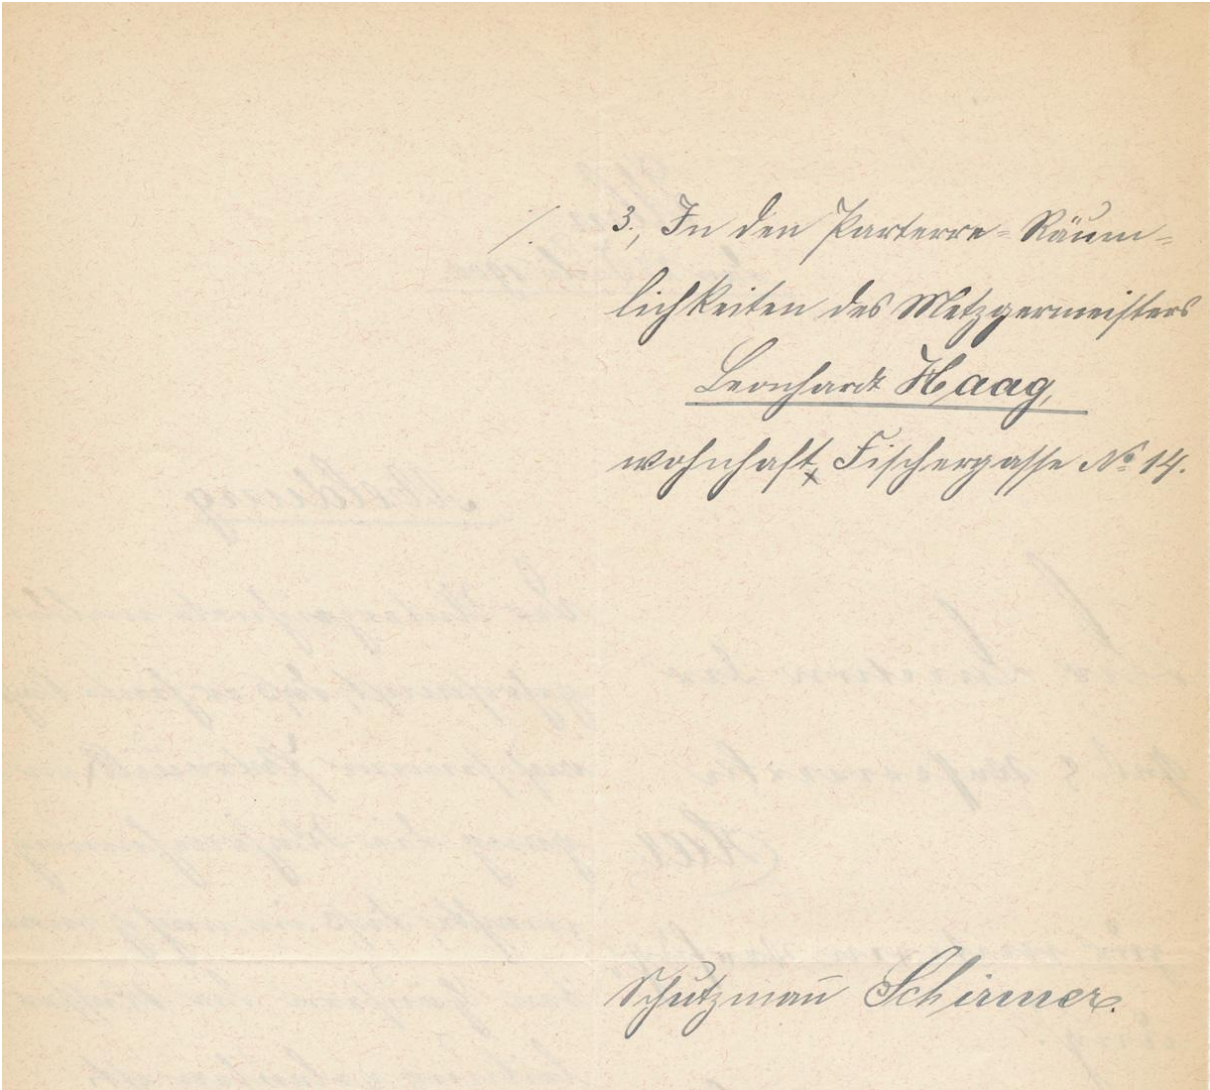 /. 3., In den Parterre-Räum-
lichkeiten des Metzgermeisters
Leonhardt Haag,
wohnhaft, Fischergasse No 14.
Schutzmañ Schirmer.